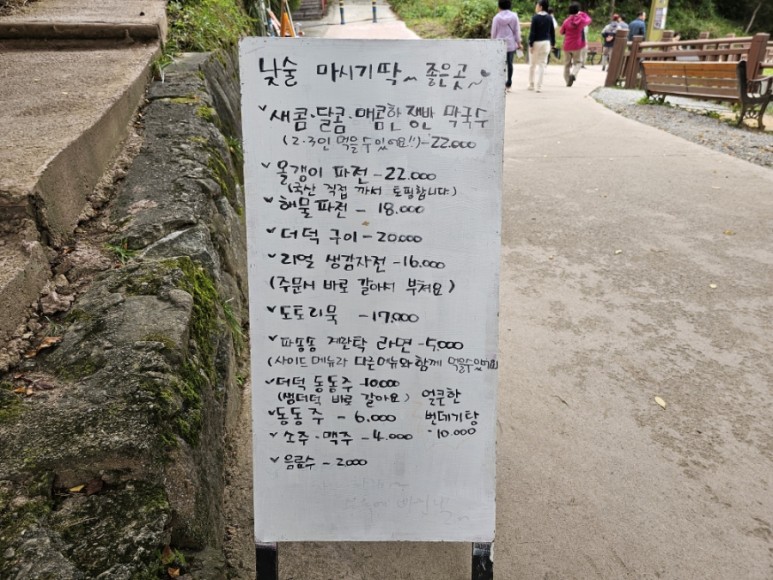 낮술 마시기 딱~ 좋은곳~♥
✓새콤·달콤·매콤한 쟁반 막국수
(2·3인 먹을수있어요!!)-22.000
✓올갱이 파전 -22.000
(국산 직접 까서 토핑합니다)
✓해물파전 - 18.000
✓더덕 구이 -20.000
✓리얼 생감자전 -16.000
(주문시 바로 갈아서 부쳐요)
✓도토리묵 -17.000
✓파송송 계란탁 라면 -5.000
(사이드메뉴라 다른메뉴와함께
✓더덕 동동주 -10.000
(생더덕 바로 갈아요) 얼큰한
✓동동주 - 6.000 번데기탕
✓소주·맥주 - 4.000 -10.000
✓음료수 - 2.000